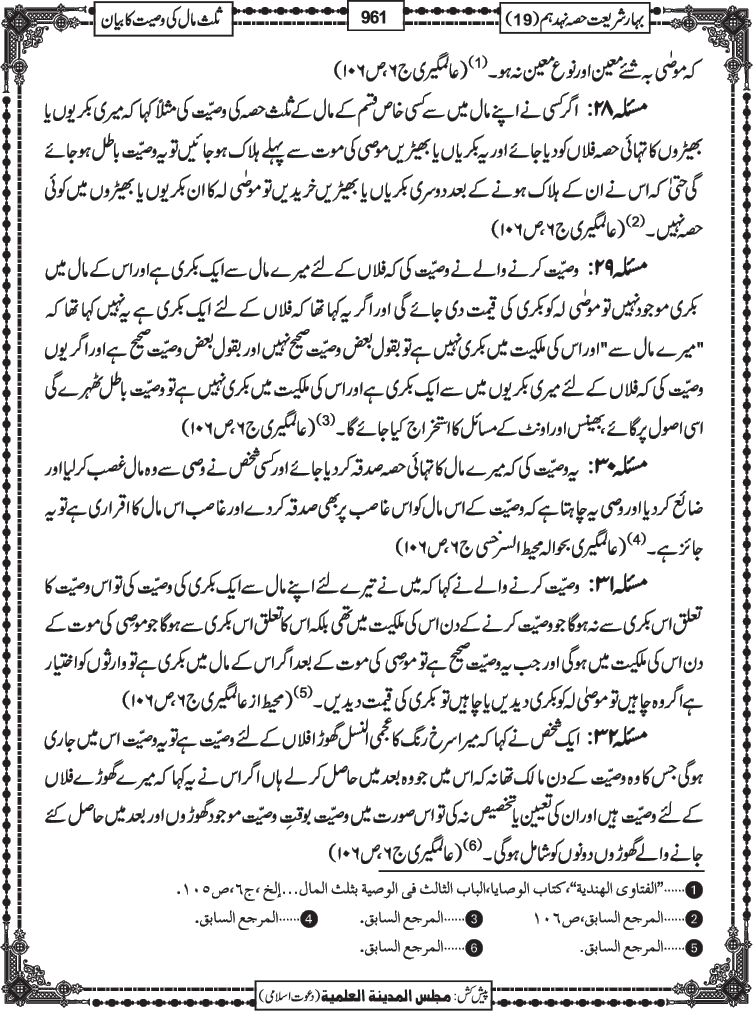 بہار شریعت حصہ نہدہم (19)
961
ثلث مال کی وصیت کا بیان
کہ موصٰی بہ شئے معین اور نوع معین نہ ہو۔ (1) (عالمگیری ج۶، ص۱۰۶)
مسئلہ ۲۸: اگر کسی نے اپنے مال میں سے کسی خاص قسم کے مال کے ثلث حصہ کی وصیّت کی مثلاً کہا کہ میری بکریوں یا
بھیڑوں کا تہائی حصہ فلاں کو دیا جائے اور یہ بکریاں یا بھیڑیں موصی کی موت سے پہلے ہلاک ہو جائیں تو یہ وصیّت باطل ہو جائے
گی حتیٰ کہ اس نے ان کے ہلاک ہونے کے بعد دوسری بکریاں یا بھیڑیں خریدیں تو موصٰی لہ کا ان بکریوں یا بھیڑوں میں کوئی
حصہ نہیں۔ (2) (عالمگیری ج۶، ص۱۰۶)
مسئلہ ۲۹: وصیّت کرنے والے نے وصیّت کی کہ فلاں کے لئے میرے مال سے ایک بکری ہے اور اس کے مال میں
بکری موجود نہیں تو موصٰی لہ کو بکری کی قیمت دی جائے گی اور اگر یہ کہا تھا کہ فلاں کے لئے ایک بکری ہے یہ نہیں کہا تھا کہ
"میرے مال سے" اور اس کی ملکیت میں بکری نہیں ہے تو بقول بعض وصیّت صحیح نہیں اور بقول بعض وصیّت صحیح ہے اور اگر یوں
وصیّت کی کہ فلاں کے لئے میری بکریوں میں سے ایک بکری ہے اور اس کی ملکیت میں بکری نہیں ہے تو وصیّت باطل ٹھہرے گی
اسی اصول پر گائے، بھینس اور اونٹ کے مسائل کا استخراج کیا جائے گا۔ (3) (عالمگیری ج۶، ص۱۰۶)
مسئلہ ۳۰: یہ وصیّت کی کہ میرے مال کا تہائی حصہ صدقہ کر دیا جائے اور کسی شخص نے وصی سے وہ مال غصب کر لیا اور
ضائع کر دیا اور وصی یہ چاہتا ہے کہ وصیّت کے اس مال کو اس غاصب پر بھی صدقہ کر دے اور غاصب اس مال کا اقراری ہے تو یہ
جائز ہے۔ (4) (عالمگیری بحوالہ محیط السرخسی ج۶، ص۱۰۶)
مسئلہ ۳۱: وصیّت کرنے والے نے کہا کہ میں نے تیرے لئے اپنے مال سے ایک بکری کی وصیّت کی تو اس وصیّت کا
تعلق اس بکری سے نہ ہوگا جو وصیّت کرنے کے دن اس کی ملکیت میں تھی بلکہ اس کا تعلق اس بکری سے ہوگا جو موصِی کی موت کے
دن اس کی ملکیت میں ہوگی اور جب یہ وصیّت صحیح ہے تو موصِی کی موت کے بعد اگر اس کے مال میں بکری ہے تو وارثوں کو اختیار
ہے اگر وہ چاہیں تو موصٰی لہ کو بکری دیدیں یا چاہیں تو بکری کی قیمت دیدیں۔ (5) (محیط از عالمگیری ج۶، ص۱۰۶)
مسئلہ ۳۲: ایک شخص نے کہا کہ میرا سرخ رنگ کا عجمی النسل گھوڑا فلاں کے لئے وصیّت ہے تو یہ وصیّت اس میں جاری
ہوگی جس کا وہ وصیّت کے دن مالک تھا نہ کہ اس میں جو وہ بعد میں حاصل کرلے ہاں اگر اس نے یہ کہا کہ میرے گھوڑے فلاں
کے لئے وصیّت ہیں اور ان کی تعیین یا تخصیص نہ کی تو اس صورت میں وصیّت بوقتِ وصیّت موجود گھوڑوں اور بعد میں حاصل کئے
جانے والے گھوڑوں دونوں کو شامل ہوگی۔ (6) (عالمگیری ج۶، ص۱۰۶)
1 ......"الفتاوی الهندية"، کتاب الوصايا، الباب الثالث فی الوصية بثلث المال...إلخ، ج٦، ص١٠٥.
2 ......المرجع السابق، ص١٠٦ 3 ......المرجع السابق. 4 ......المرجع السابق.
5 ......المرجع السابق. 6 ......المرجع السابق.
پیش کش: مجلس المدينة العلمية (دعوت اسلامی)